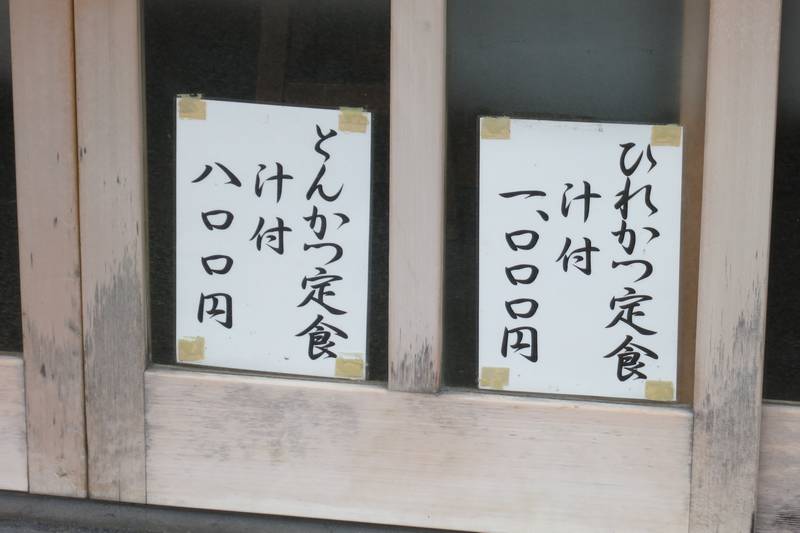 とんかつ定食
汁付
八〇〇円
ひれかつ定食
汁付
一、〇〇〇円